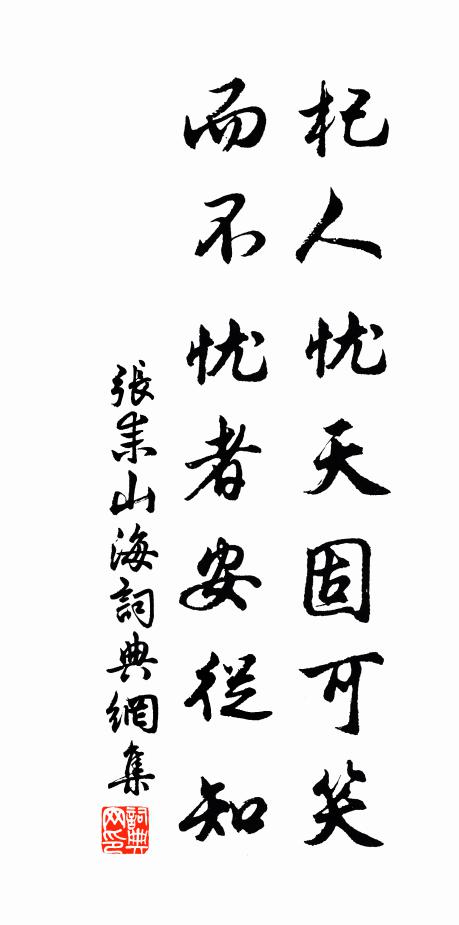 杞人忧天固可笑
而不忧者安从知
張耒山海詞典網集
詞典
网印